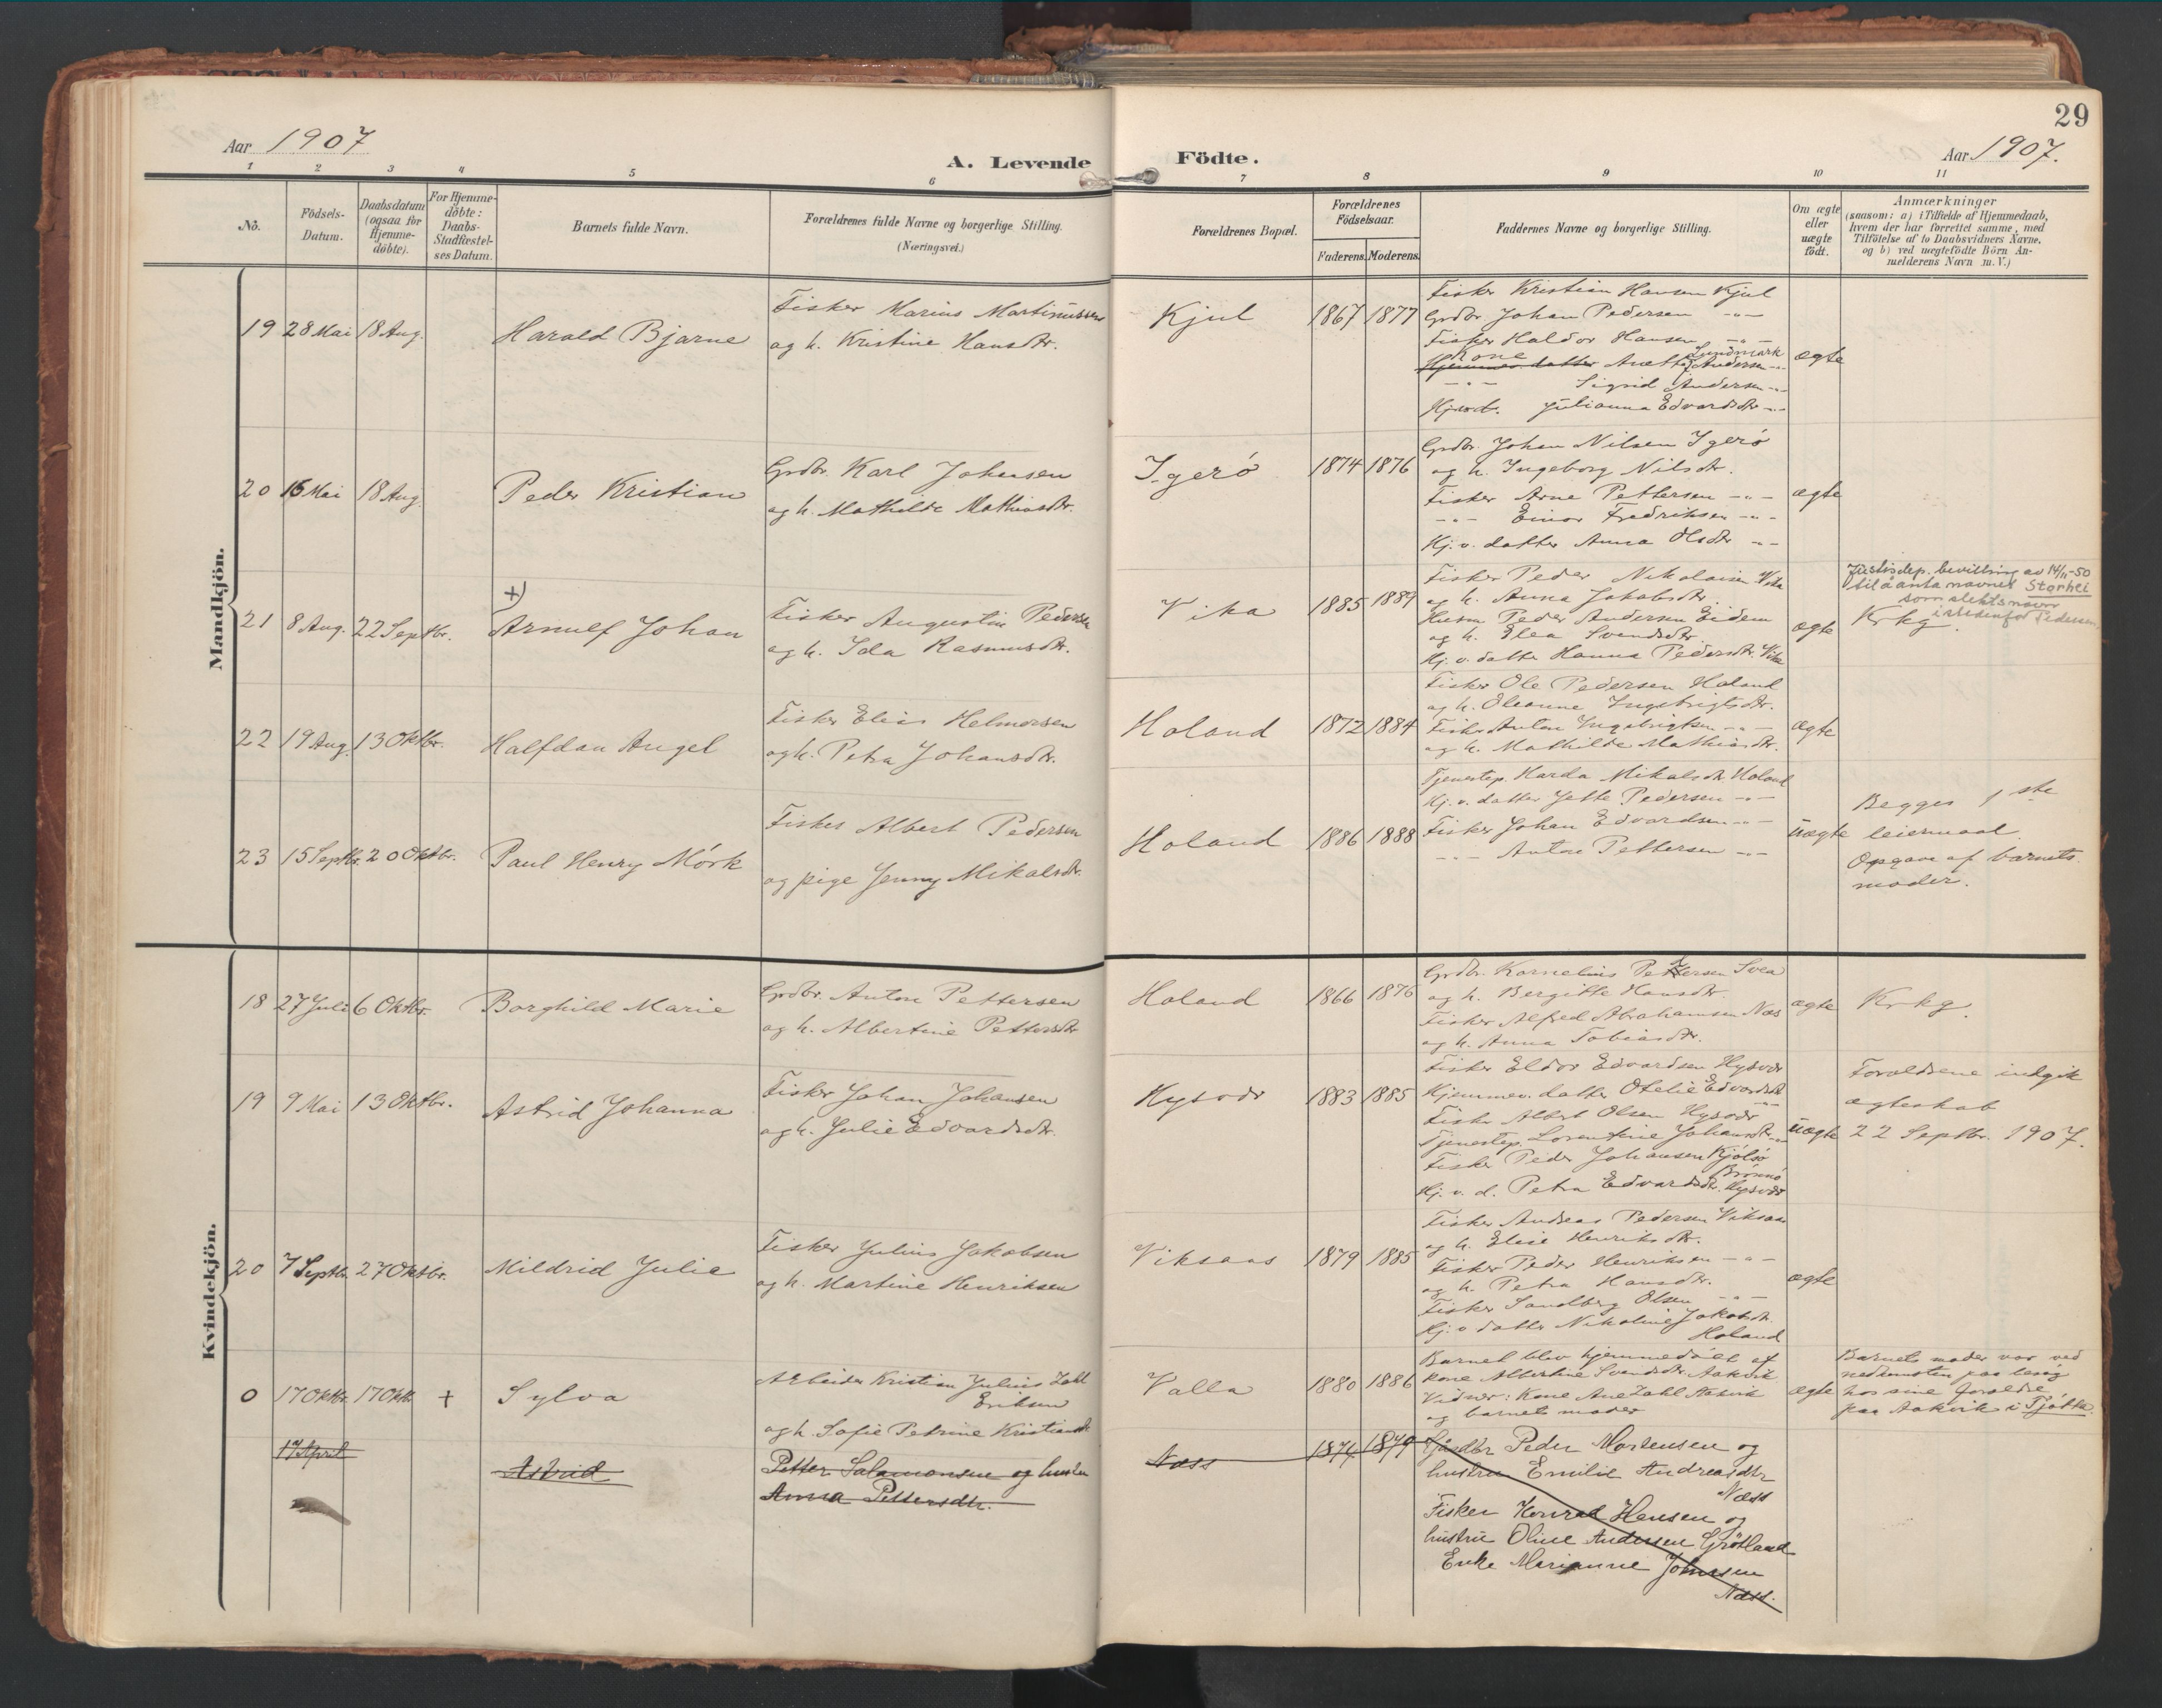 29
Aar 1907
A. Levende Födte.
Aar 1907.
1 2 3 4 5 6 7 8 9 10 11
No.
Födsels-
Datum.
Daabsdatum
(ogsaa for
Hjemme-
döbte).
For Hjemme-
döbte:
Daabs-
Stadfæstel-
ses Datum.
Barnets fulde Navn.
Forældrenes fulde Navne og borgerlige Stilling.
(Næringsvei.)
Forældrenes Bopæl.
Forældrenes
Födselsaar.
Faderens. Moderens.
Faddernes Navne og borgerlige Stilling.
Om ægte
eller
uægte
födt.
Anmærkninger
(saasom: a) i Tilfælde af Hjemmedaab,
hvem der har forrettet samme, med
Tilföielse af to Daabsvidners Navne,
og b) ved uægtefödte Börn An-
melderens Navn m. V.)
Mandkjön.
19 28 Mai 18 Aug.
Harald Bjarne
Fisker Marius Martinussen
og h. Kristine Hansdtr.
Kjul
1867 1877
Fisker Kristian Hansen Kjul
Grdbr. Johan Pedersen -"-
Fisker Haldor Hansen -"-
Kone Lundmark
Hjemmev. datter Anetta Andersen -"-
-"- Sigrid Andersen -"-
Hjvd. Julianna Edvardsdtr -"-
ægte
20 16 Mai 18 Aug.
Peder Kristian
Grdbr Karl Johansen
og h. Mathilde Mathiasdtr.
Igerö
1874 1876
Grdbr. Johan Nilsen Igerö
og h. Ingeborg Nilsdtr.
Fisker Arne Pettersen -"-
-"- Einar Fredriksen -"-
Hj. v. datter Anna Olsdtr -"-
ægte
21 8 Aug. 22 Septbr.
+)
Arnulf Johan
Fisker Augustin Pedersen
og h. Ida Rasmusdtr.
Vika
1885 1889
Fisker Peder Nikolaisen Vika
og h. Anna Jakobsdtr.
Husm. Peder Andersen Eidem
og h. Elea Svendsdtr.
Hj. v. datter Hanna Pedersdtr. Vika
ægte
Justisdep. bevilling av 14/11-50
til å anta navnet Storhei
som slektsnavn
istedenfor Pedersen.
Krkg.
22 19 Aug. 13 Oktbr.
Halfdan Angel
Fisker Elias Helmersen
og h. Petra Johansdtr.
Holand
1872 1884
Fisker Ole Pedersen Holand
og h. Oleanne Ingebrigtsdtr.
Fisker Anton Ingebrigtsen -"-
og h. Mathilde Mathiasdtr.
ægte
23 15 Septbr. 20 Oktbr.
Paul Henry Mörk
Fisker Albert Pedersen
og pige Jenny Mikalsdtr.
Holand
1886 1888
Tjenestep. Harda Mikalsdtr. Holand
Hj. v. datter Jette Pedersen -"-
Fisker Johan Edvardsen -"-
-"- Anton Pettersen -"-
uægte
Begges 1ste
leiermaal.
Opgave af barnets
moder.
Kvindekjön.
18 27 Juli 6 Oktbr.
Borghild Marie
Grdbr. Anton Pettersen
og h. Albertine Pettersdtr
Holand
1866 1876
Grdbr. Kornelius Pettersen Svea
og h. Bergitte Hansdtr.
Fisker Alfred Abrahamsen Næs
og h. Anna Tobiasdtr.
ægte
Krkg.
19 9 Mai 13 Oktbr.
Astrid Johanna
Fisker Johan Johansen
og h. Julie Edvardsdtr.
Hysvær
1883 1885
Fisker Eldor Edvardsen Hysvær
Hjemmev. datter Otelie Edvardsdtr -"-
Fisker Albert Olsen Hysvær
Tjenestep. Lorentine Johansdtr. -"-
Fisker Peder Johansen Kjölsö
Brönnö
Hj. v. d. Petra Edvardsdtr. Hysvær
uægte
Forældrene indgik
ægteskab
22 Septbr. 1907.
20 7 Septbr. 27 Oktbr.
Mildrid Julie
Fisker Julius Jakobsen
og h. Martine Henriksen
Viksaas
1879 1885
Fisker Andreas Pedersen Viksaas
og h. Elise Henriksdtr.
Fisker Peder Henriksen -"-
og h. Petra Hansdtr.
Fisker Sandberg Olsen -"-
Hj. v. datter Nikoline Jakobsdtr.
Holand
ægte
0 17 Oktbr. 17 Oktb. +
Sylva
Arbeider Kristian Julius Zahl
Eriksen
og h. Sofie Petrine Kristiansdtr
Valla
1880 1886
Barnet blev hjemmedöbt af
kone Albertine Svendsdtr. Aakvik
Vidner: Kone Ane Zahl Aakvik
og barnets moder
ægte
Barnets moder var ved
nedkomsten paa besög
hos sine forældre
paa Aakvik i Tjötta.
17 April
Astrid
Petter Salamonsen og hustru
Anna Pettersdtr.
Næss
1874 1879
Gårdbr Peder Mortensen og
hustru Emilie Andreasdtr
Næss
Fisker Konrad Hansen og
hustru Oline Andersen Grötland
Enke Marianne Johnsen
Næss.